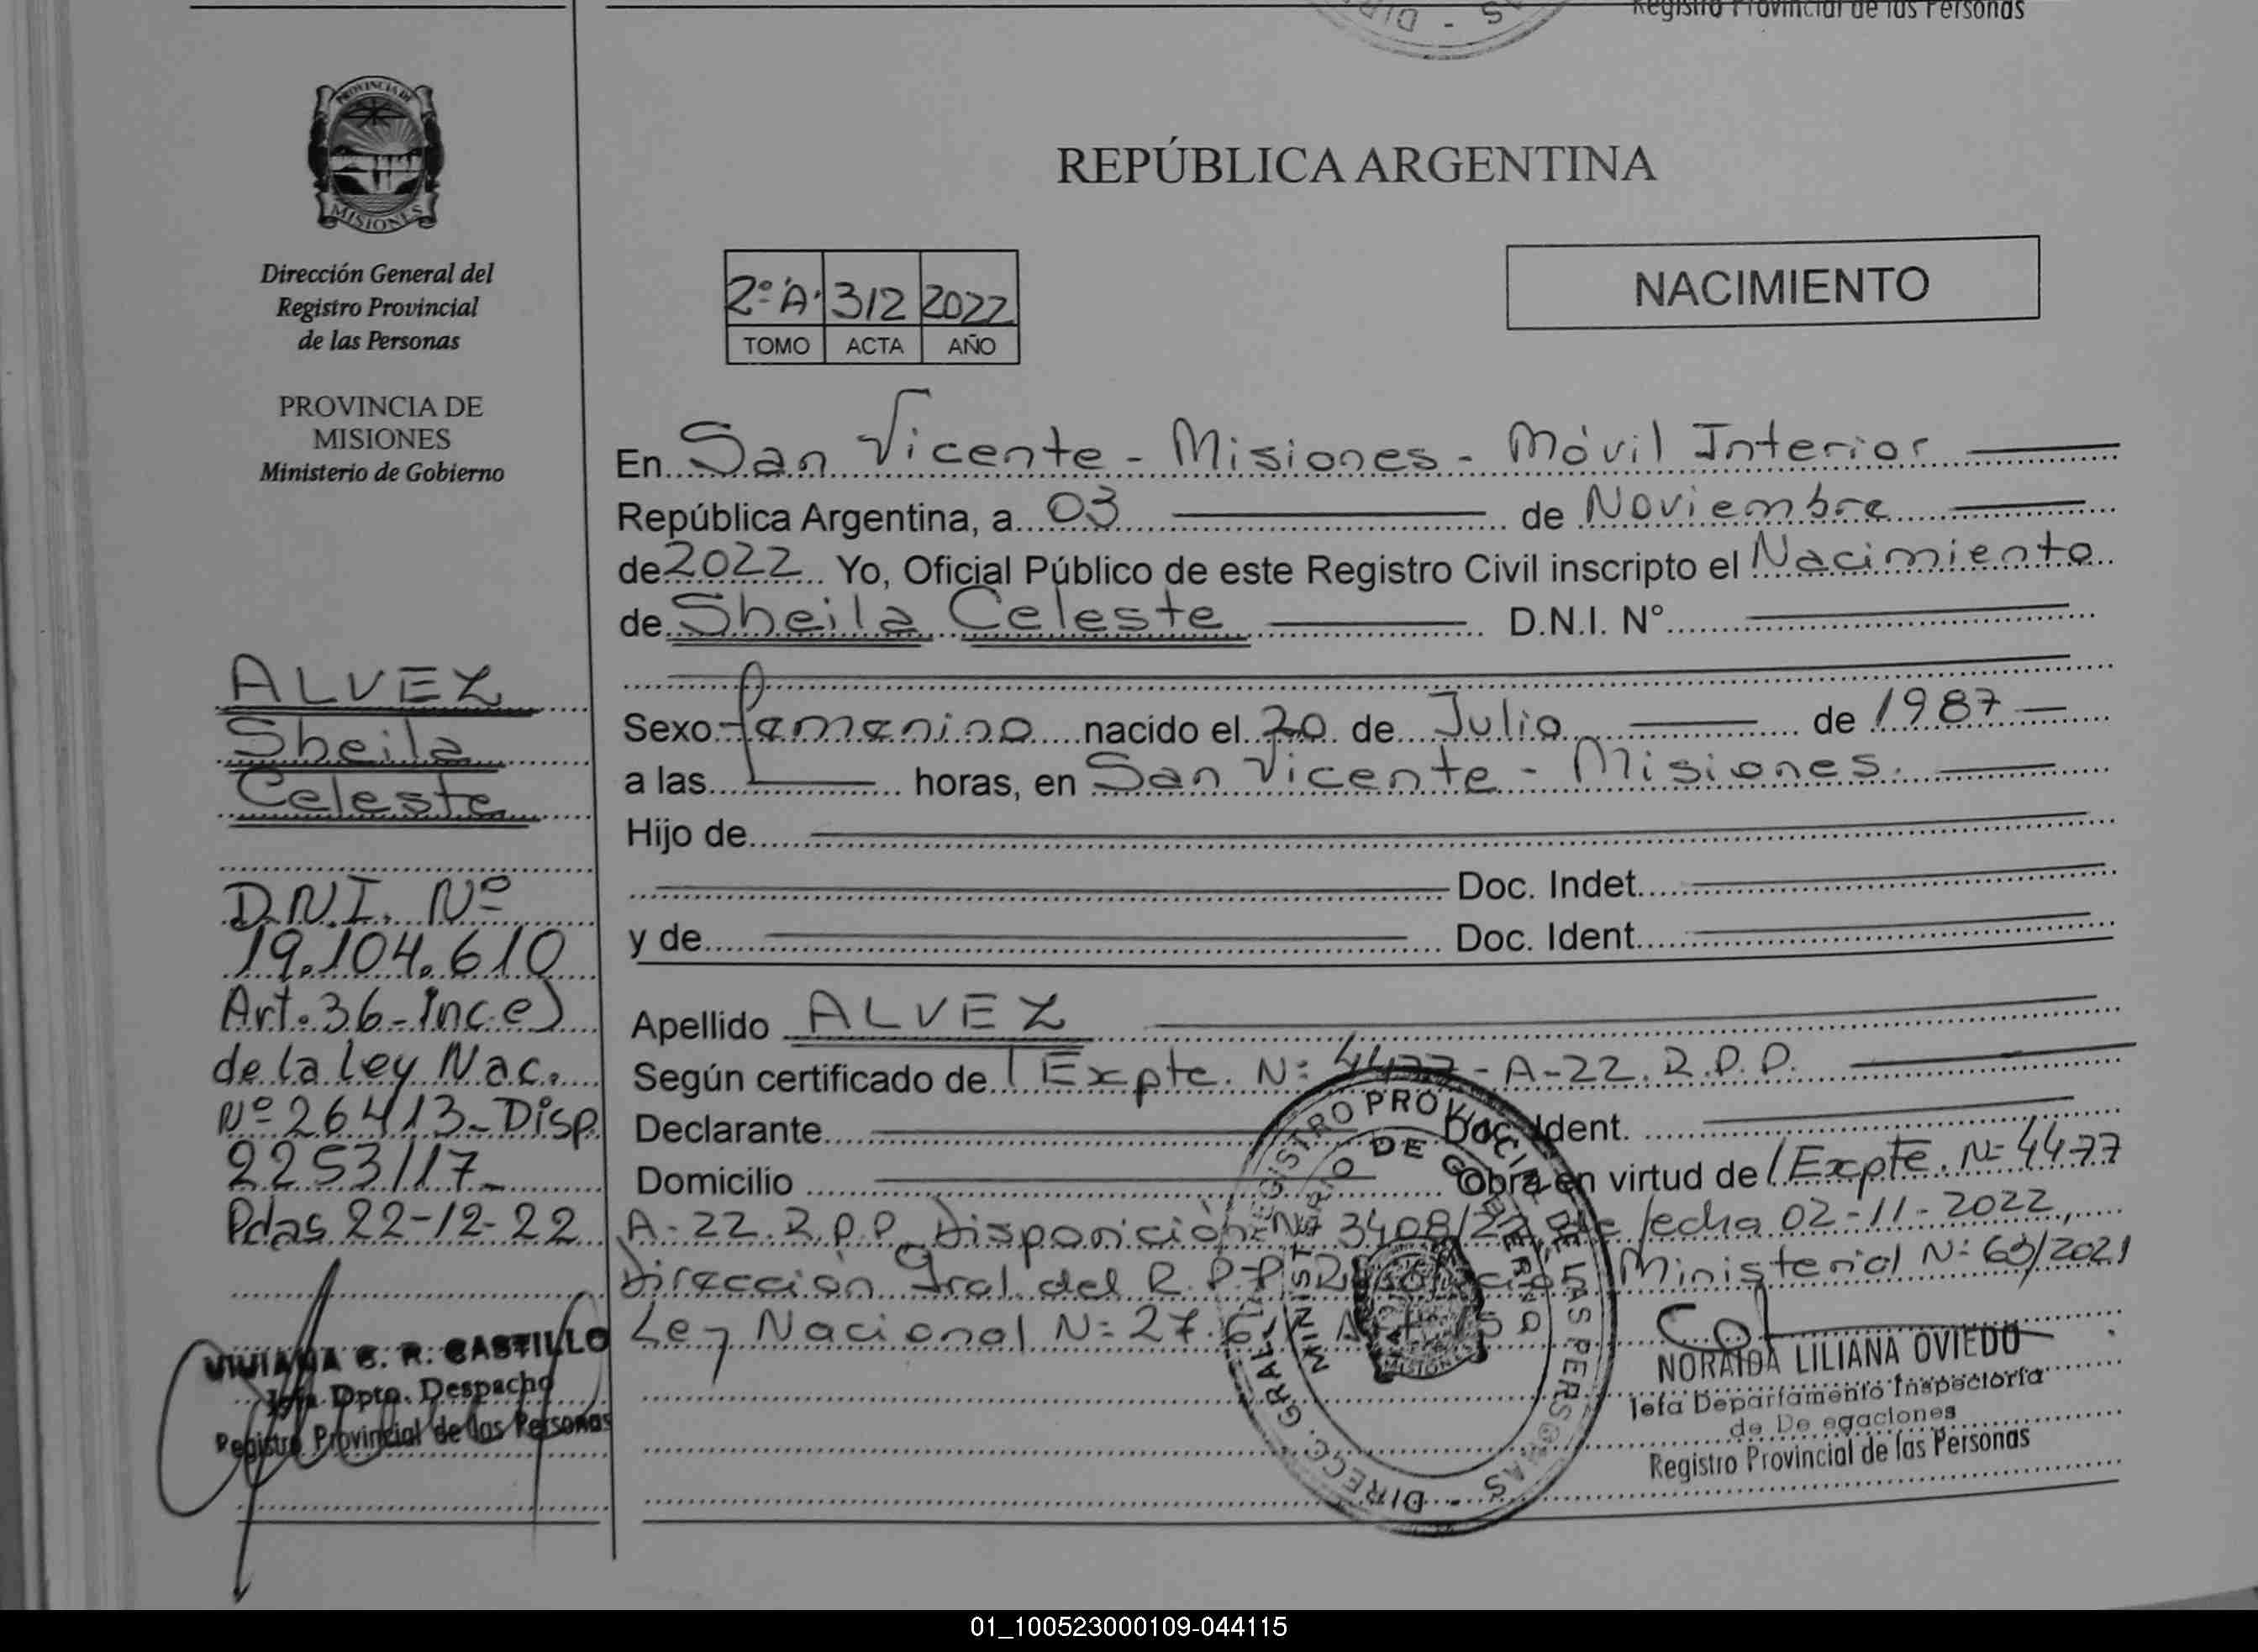 Registro Provincial de las Personas
PROVINCIA DE
MISIONES
Dirección General del
Registro Provincial
de las Personas
PROVINCIA DE
MISIONES
Ministerio de Gobierno
ALVEZ
Sheila
Celeste
D.N.I. Nº
19.104.610
Art. 36 - Inc. e)
de la Ley Nac.
Nº 26413 - Disp
2253/17 -
Pdas 22-12-22
VIVIANA C. R. CASTILLO
Jefa Dpto. Despacho
Registro Provincial de las Personas
REPÚBLICA ARGENTINA
2º A. 312 2022
TOMO ACTA AÑO
NACIMIENTO
En San Vicente - Misiones - Móvil Interior
República Argentina, a 03 de Noviembre
de 2022 Yo, Oficial Público de este Registro Civil inscripto el Nacimiento
de Sheila Celeste D.N.I. Nº
Sexo femenino nacido el 20 de Julio de 1987
a las horas, en San Vicente - Misiones.
Hijo de
Doc. Indet.
y de Doc. Ident.
Apellido ALVEZ
Según certificado de Expte. Nº 4477 - A-22. R.P.P.
Declarante Doc. Ident.
Domicilio Obra en virtud de Expte. Nº 4477
A-22. R.P.P. Disposición Nº 3408/22 de fecha 02-11-2022,
Dirección Gral. del R.P.P. Resolución Ministerial Nº 63/2021
Ley Nacional Nº 27.
NORAIDA LILIANA OVIEDO
Jefa Departamento Inspectoría
de De egaciones
Registro Provincial de las Personas
DIRECC. GRAL. REGISTRO PROVINCIAL DE LAS PERSONAS
MINISTERIO DE GOBIERNO
MISIONES
01_100523000109-044115